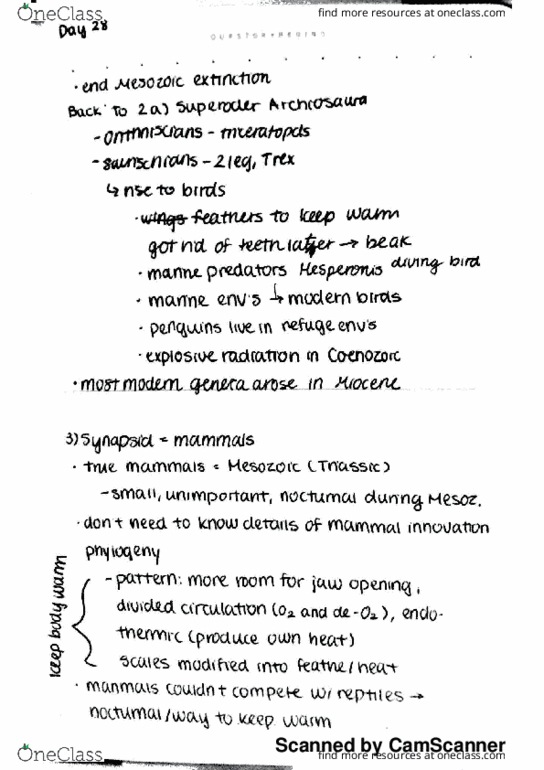 OneClass
find more resources at oneclass.com
Day 28
· end Mesozoic extinction
Back to 2a) Superoder Archiosaura
- triceratopds
- - 2 leg, T rex
↳ rise to birds
· wings feathers to keep warm
got rid of teeth later → beak
· marine predators Hesperonis diving bird
· marine env's ↳ modern birds
· penguins live in refuge env's
· explosive radiation in Coenozoic
· most modern genera arose in Miocene
3) Synapsid = mammals
· true mammals = Mesozoic (Triassic)
- small, unimportant, nocturnal during Mesoz.
· don't need to know details of mammal innovation
phylogeny
- pattern: more room for jaw opening,
divided circulation (O₂ and de-O₂), endo-
thermic (produce own heat)
scales modified into feathe/heat
keep body warm
· mammals couldn't compete w/ reptiles →
nocturnal/way to keep warm
Scanned by CamScanner
OneClass
find more resources at oneclass.com